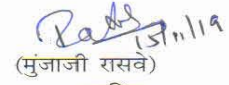 15/11/19
(मुंजाजी रासवे)